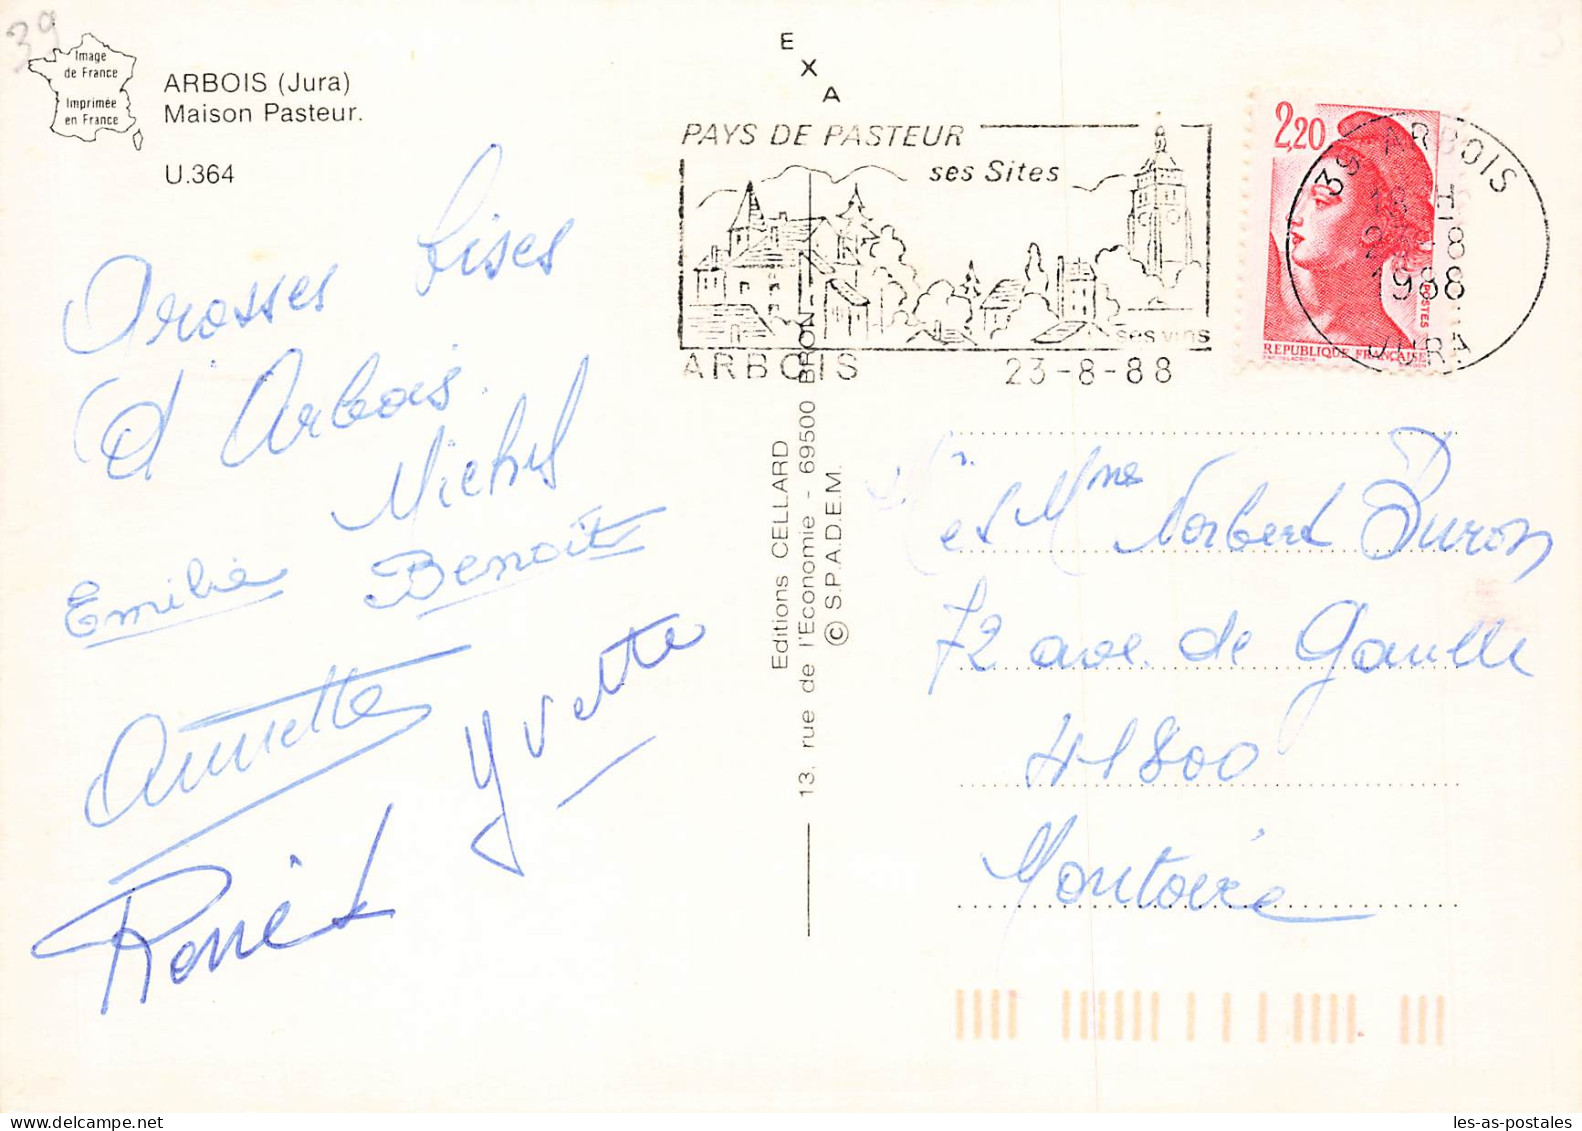 39
Image
de France
Imprimée
en France
ARBOIS (Jura)
Maison Pasteur.
U.364
Grosses bises
d'Arbois.
Michel
Emilie Benoit
Annette
Yvette
René
E
X
A
PAYS DE PASTEUR
ses Sites
ses vins
ARBOIS 23-8-88
2,20
REPUBLIQUE FRANÇAISE
POSTES
39 ARBOIS
18 H
23-8
1988
JURA
Editions CELLARD
13, rue de l'Economie - 69500 BRON
© S.P.A.D.E.M.
Mr et Mme Norbert Buron
72 ave. de Gaulle
41800
Montoire
les-as-postales